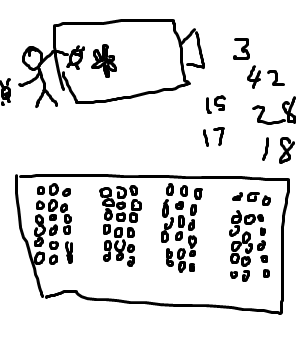 3
42
15 28
17 18